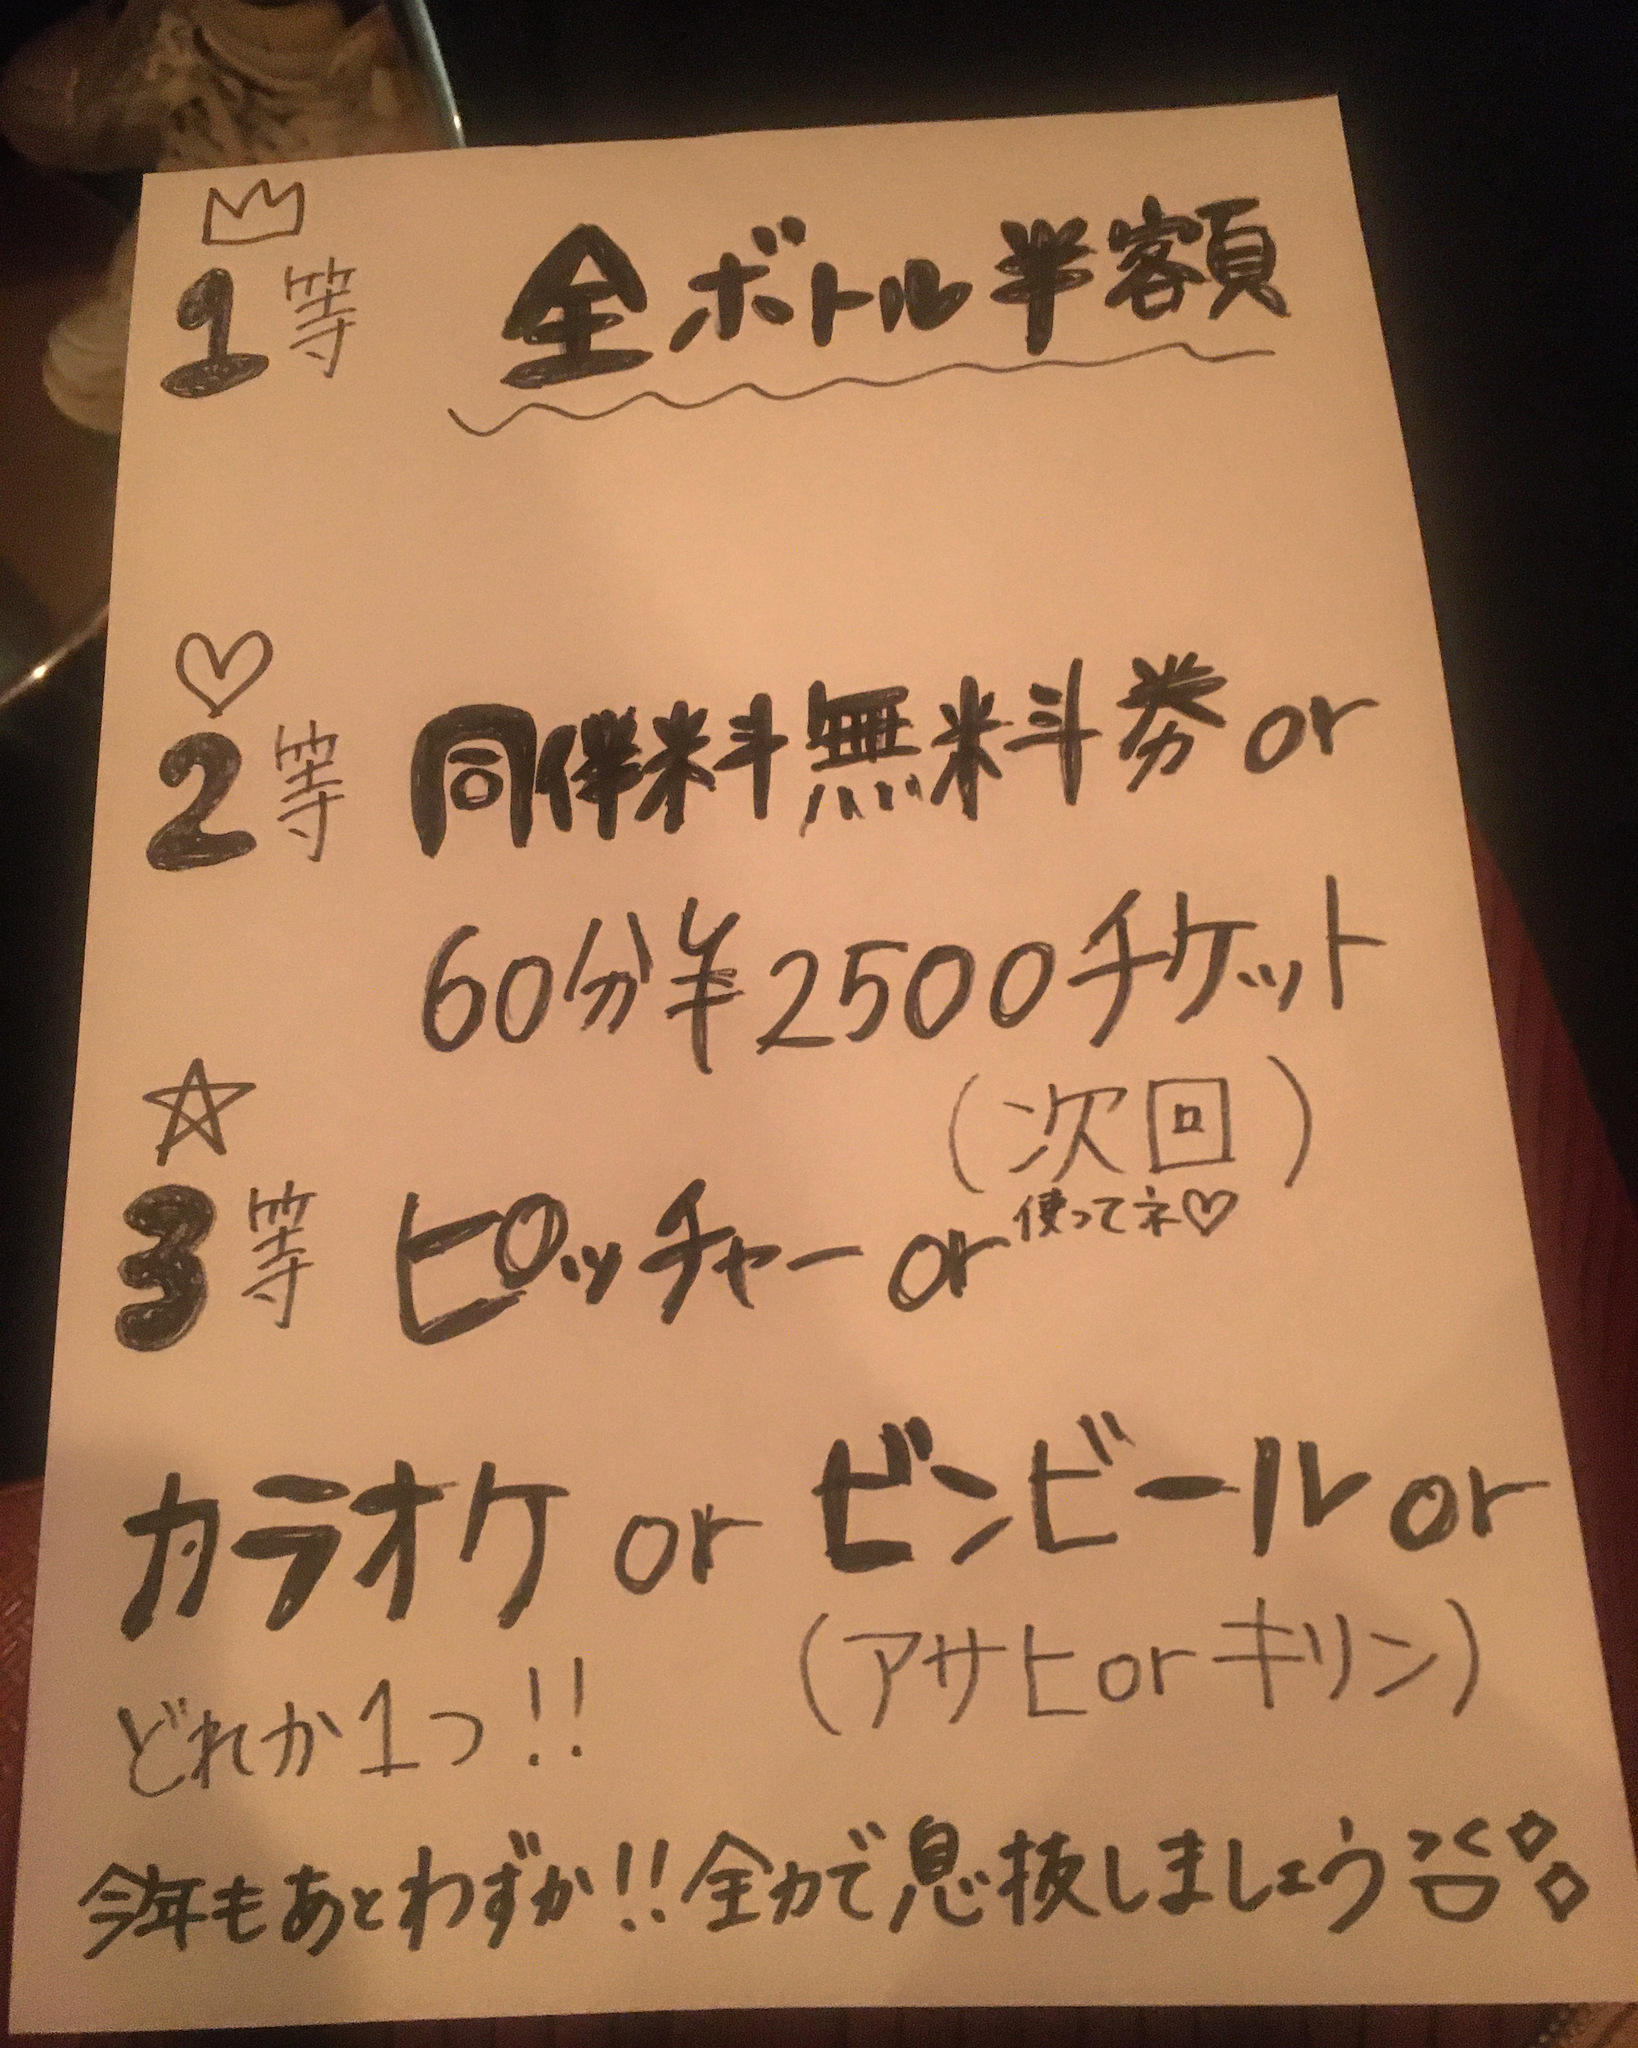 1等 全ボトル半額
2等 同伴料無料券or
60分¥2500チケット
(次回)
使ってネ♡
3等 ピッチャーor
カラオケ or ビンビール or
(アサヒorキリン)
どれか1つ!!
今年もあとわずか!!全力で息抜しましょう